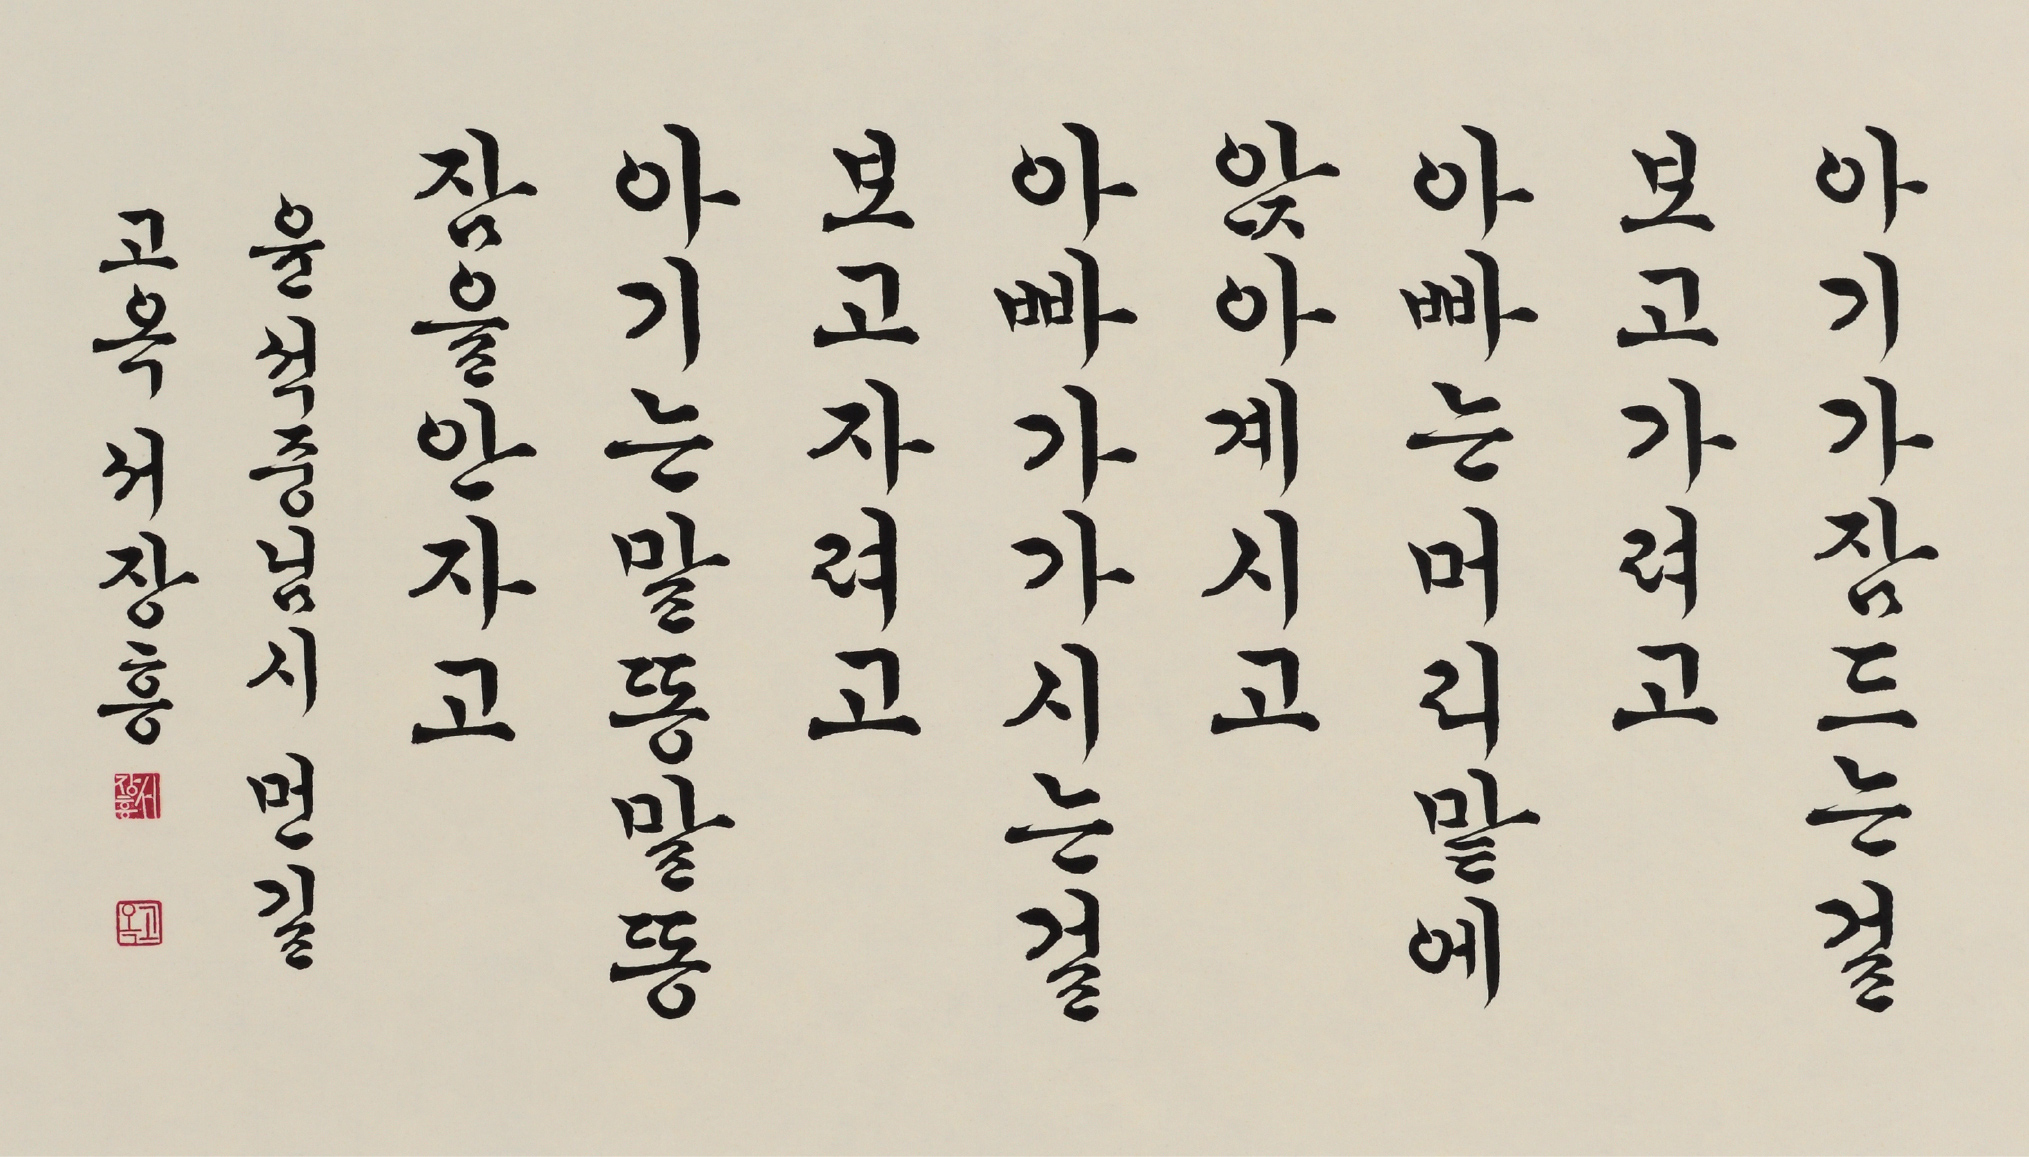 아기가잠드는걸
보고가려고
아빠는머리맡에
앉아계시고
아빠가가시는걸
보고자려고
아기는말똥말똥
잠을안자고
윤석중님시 먼길
고옥서장흥
서장흥
고옥